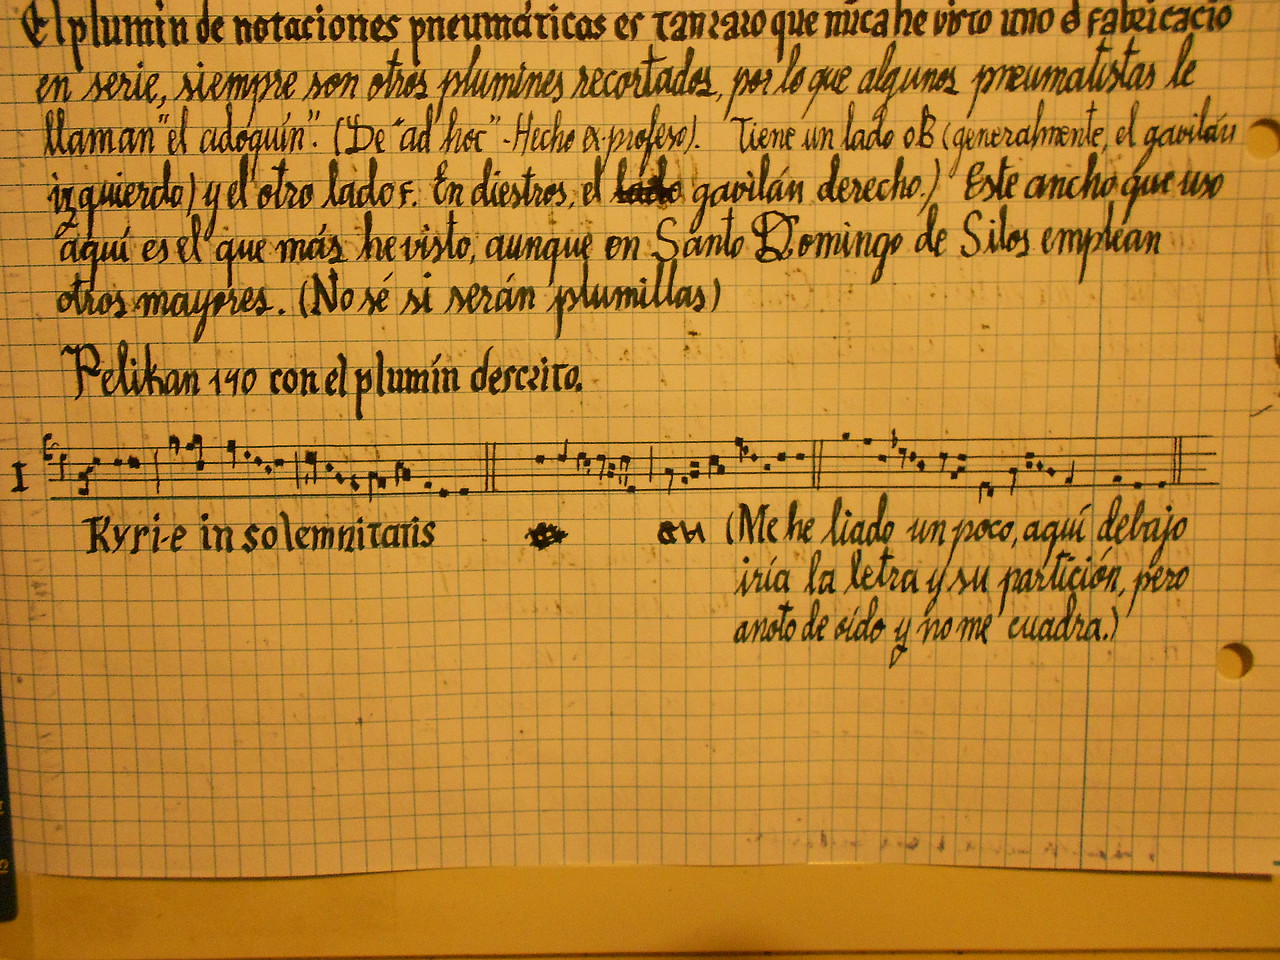 El plumin de notaciones pneumáticas es tan raro que núca he visto uno d fabricació
en serie, siempre son otros plumines recortados, por lo que algunos pneumatistas le
llaman "el adoquín". (De "ad hoc" - Hecho ex-profeso). Tiene un lado OB (generalmente, el gavilán
izquierdo) y el otro lado F. En diestros, el lado gavilán derecho.) Este ancho que uso
aquí es el que más he visto, aunque en Santo Domingo de Silos emplean
otros mayores. (No sé si serán plumillas)
Pelikan 140 con el plumín descrito.
I
Kyri-e in solemnitatis
(Me he liado un poco, aquí debajo
iría la letra y su partición, pero
anoto de oído y no me cuadra.)